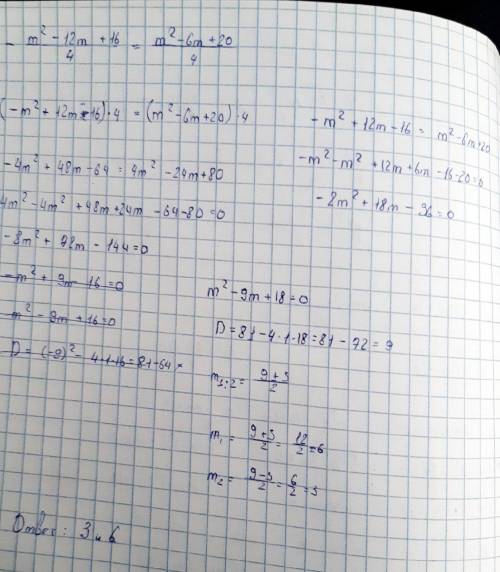 - m² - 12m + 16 / 4 = m² - 6m + 20 / 4
(-m² + 12m - 16) · 4 = (m² - 6m + 20) · 4
-4m² + 48m - 64 = 4m² - 24m + 80
4m² - 4m² + 48m + 24m - 64 - 80 = 0
-8m² + 72m - 144 = 0
-m² + 9m - 16 = 0
m² - 9m + 16 = 0
D = (-9)² - 4·1·16 = 81 - 64 =
-m² + 12m - 16 = m² - 6m + 20
-m² - m² + 12m + 6m - 16 - 20 = 0
-2m² + 18m - 36 = 0
m² - 9m + 18 = 0
D = 81 - 4 · 1 · 18 = 81 - 72 = 9
m₁;₂ = 9 ± 3 / 2
m₁ = 9 + 3 / 2 = 12 / 2 = 6
m₂ = 9 - 3 / 2 = 6 / 2 = 3
Ответ: 3 и 6